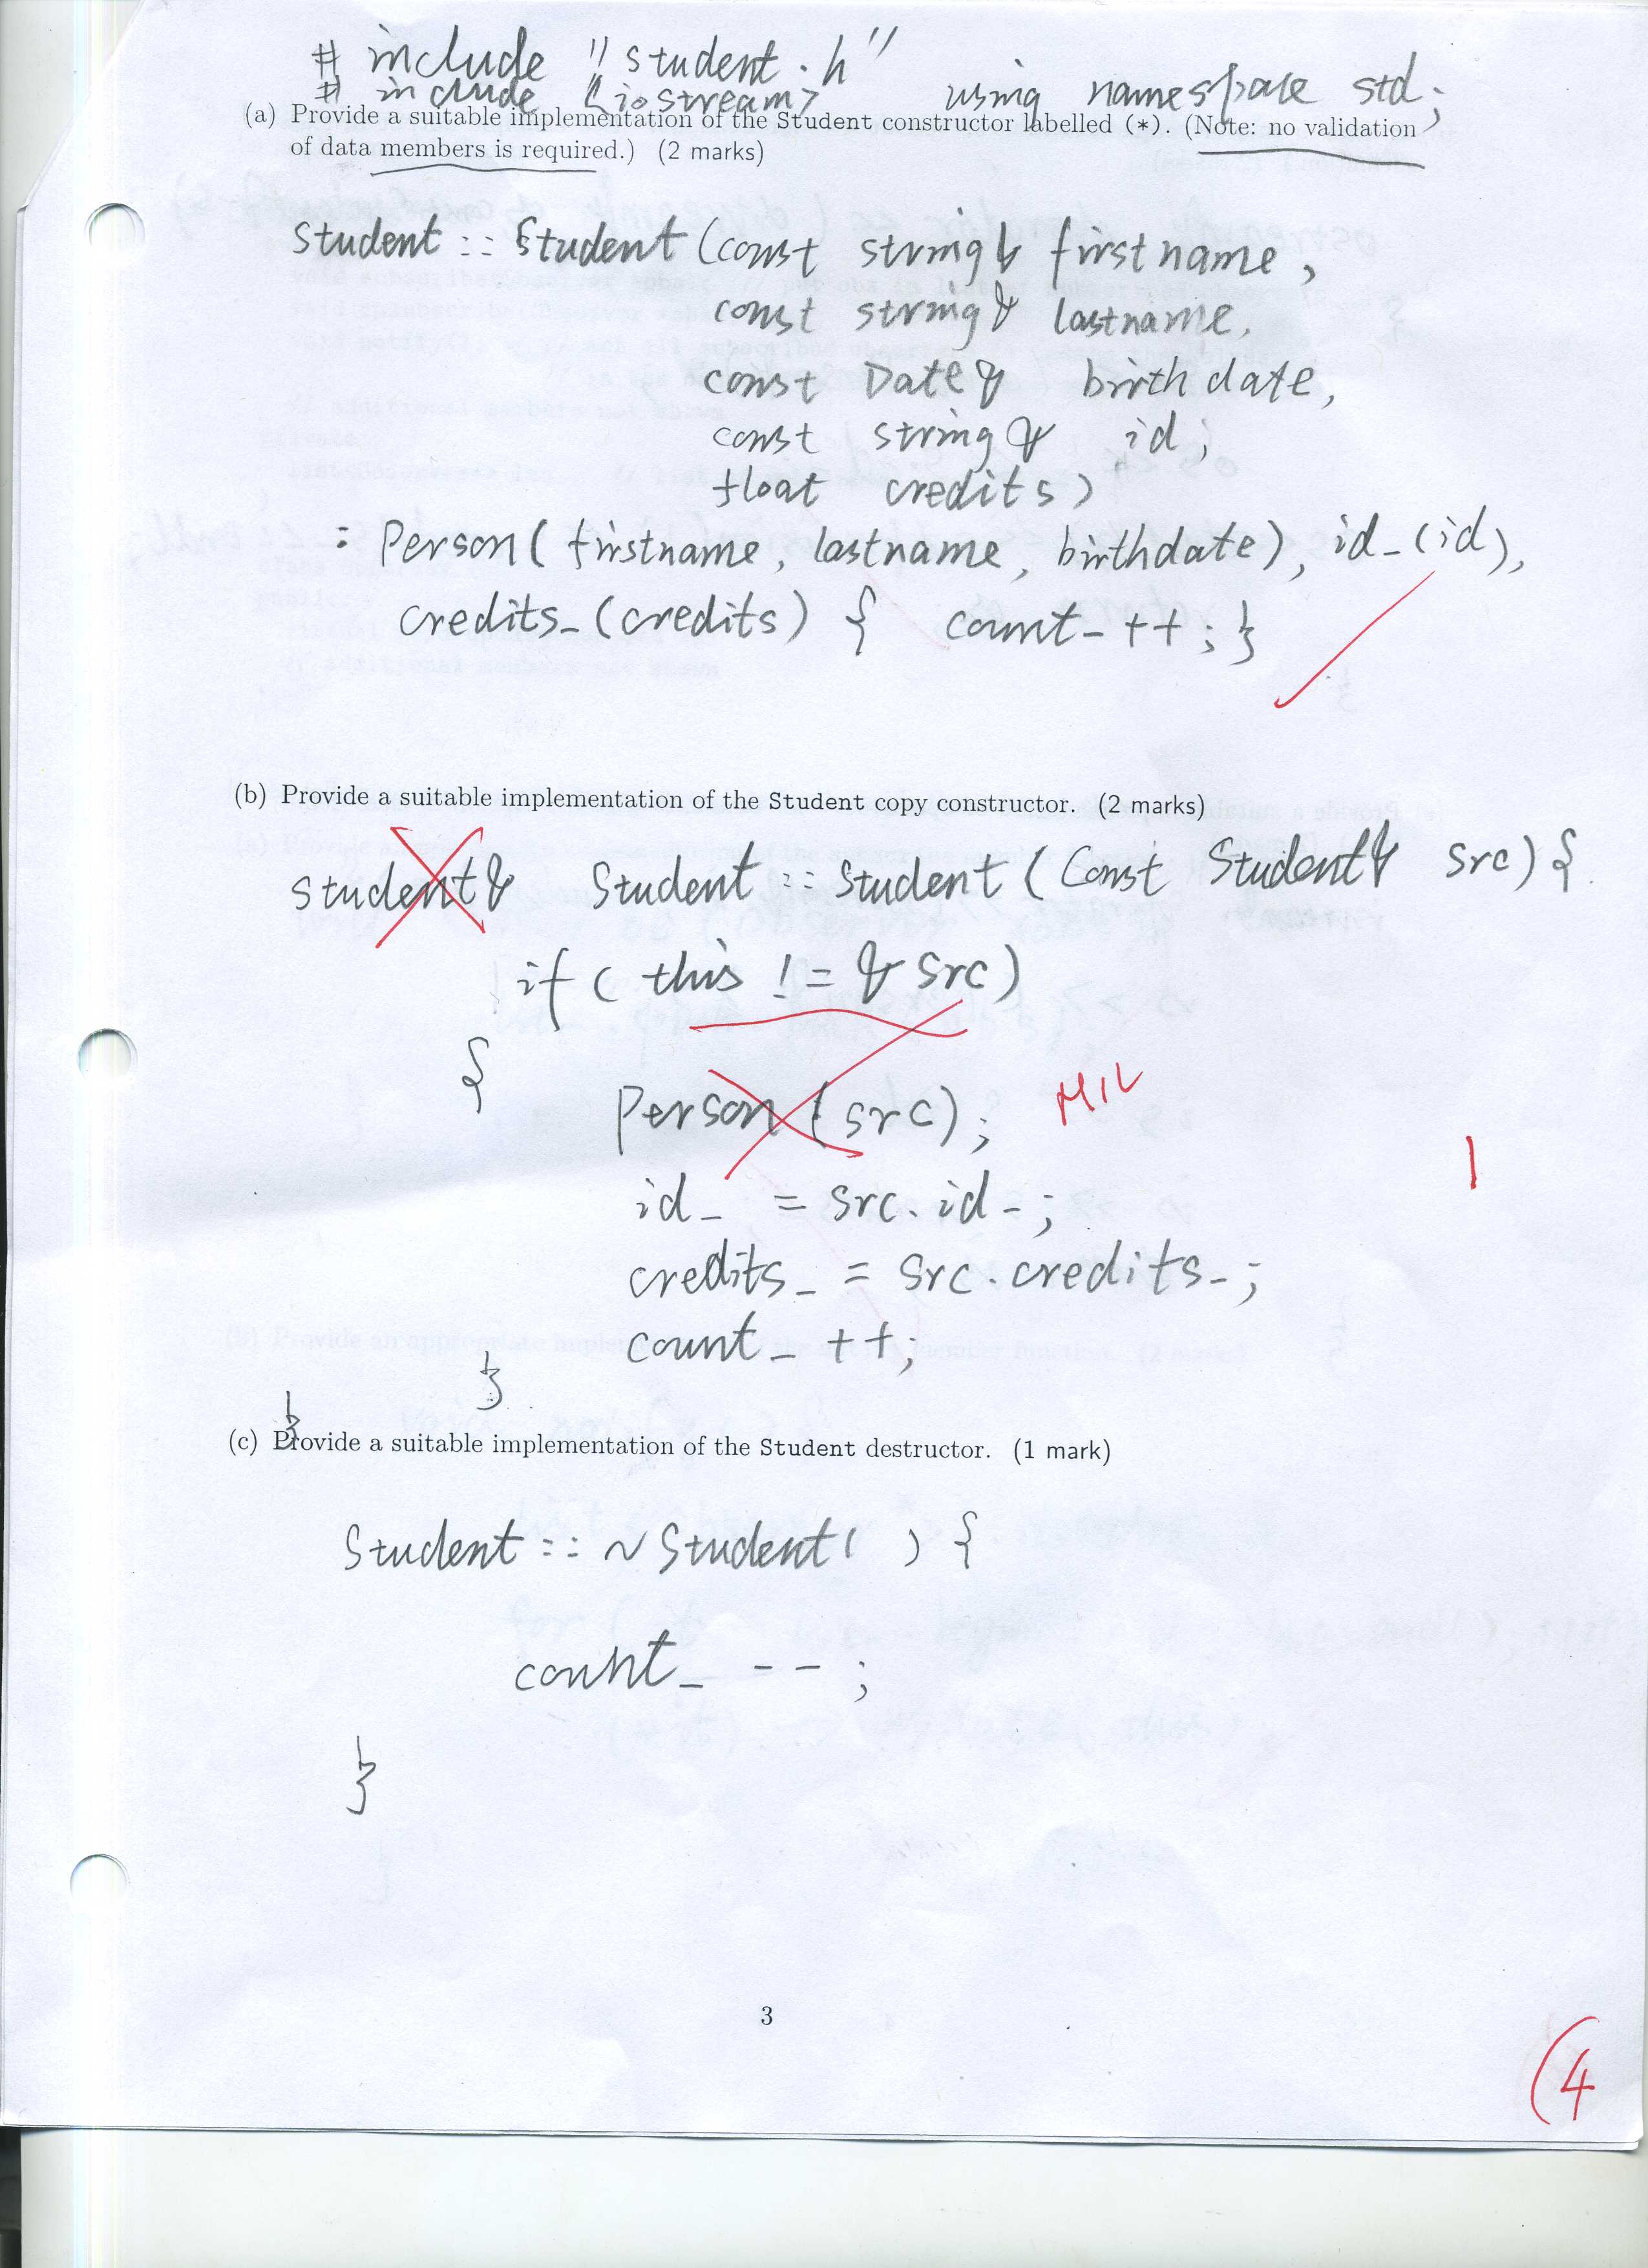 # include "student.h"
# include <iostream> using namespace std;
(a) Provide a suitable implementation of the Student constructor labelled (*). (Note: no validation
of data members is required.) (2 marks)
Student :: Student (const string& firstname,
const string& lastname,
const Date& birthdate,
const string& id,
float credits)
: Person( firstname, lastname, birthdate), id_(id),
credits_(credits) { count_++; }
(b) Provide a suitable implementation of the Student copy constructor. (2 marks)
student& Student :: Student ( Const Student& src) {
if ( this != & src)
{
Person (src); MIL
1
id_ = src.id_;
credits_ = src.credits_;
count_ ++;
}
}
(c) Provide a suitable implementation of the Student destructor. (1 mark)
Student :: ~Student( ) {
count_ --;
}
3
(4